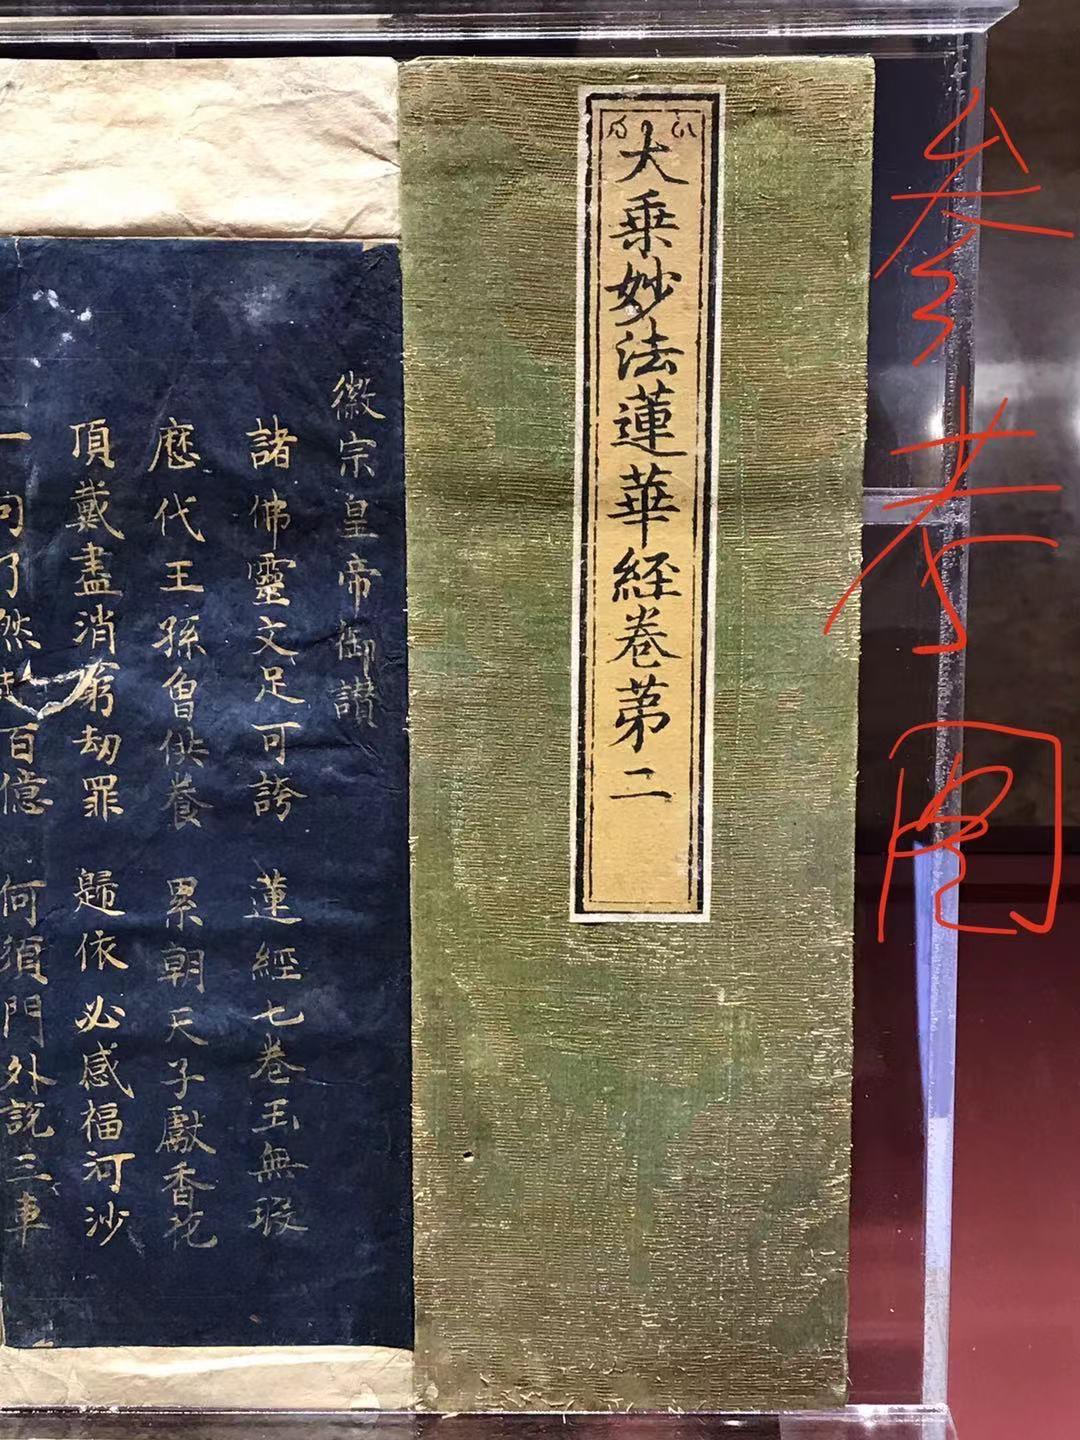 参考图
大乗妙法蓮華経卷苐二
徽宗皇帝御讃
諸佛靈文足可誇 蓮經七卷玉無瑕
歷代王孫曾供養 累朝天子獻香花
頂戴盡消窮劫罪 歸依必感福河沙
一句了然 百億 何須門外說三車